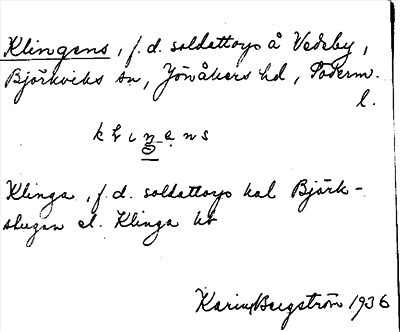 Klingens, f.d. soldattorp å Vedeby,
Björkviks sn, Jönåkers hd, Söderm.
l.
Klinga, f.d. soldattorp kal Björk-
stugan el. Klinga
Karin Bergström 1936